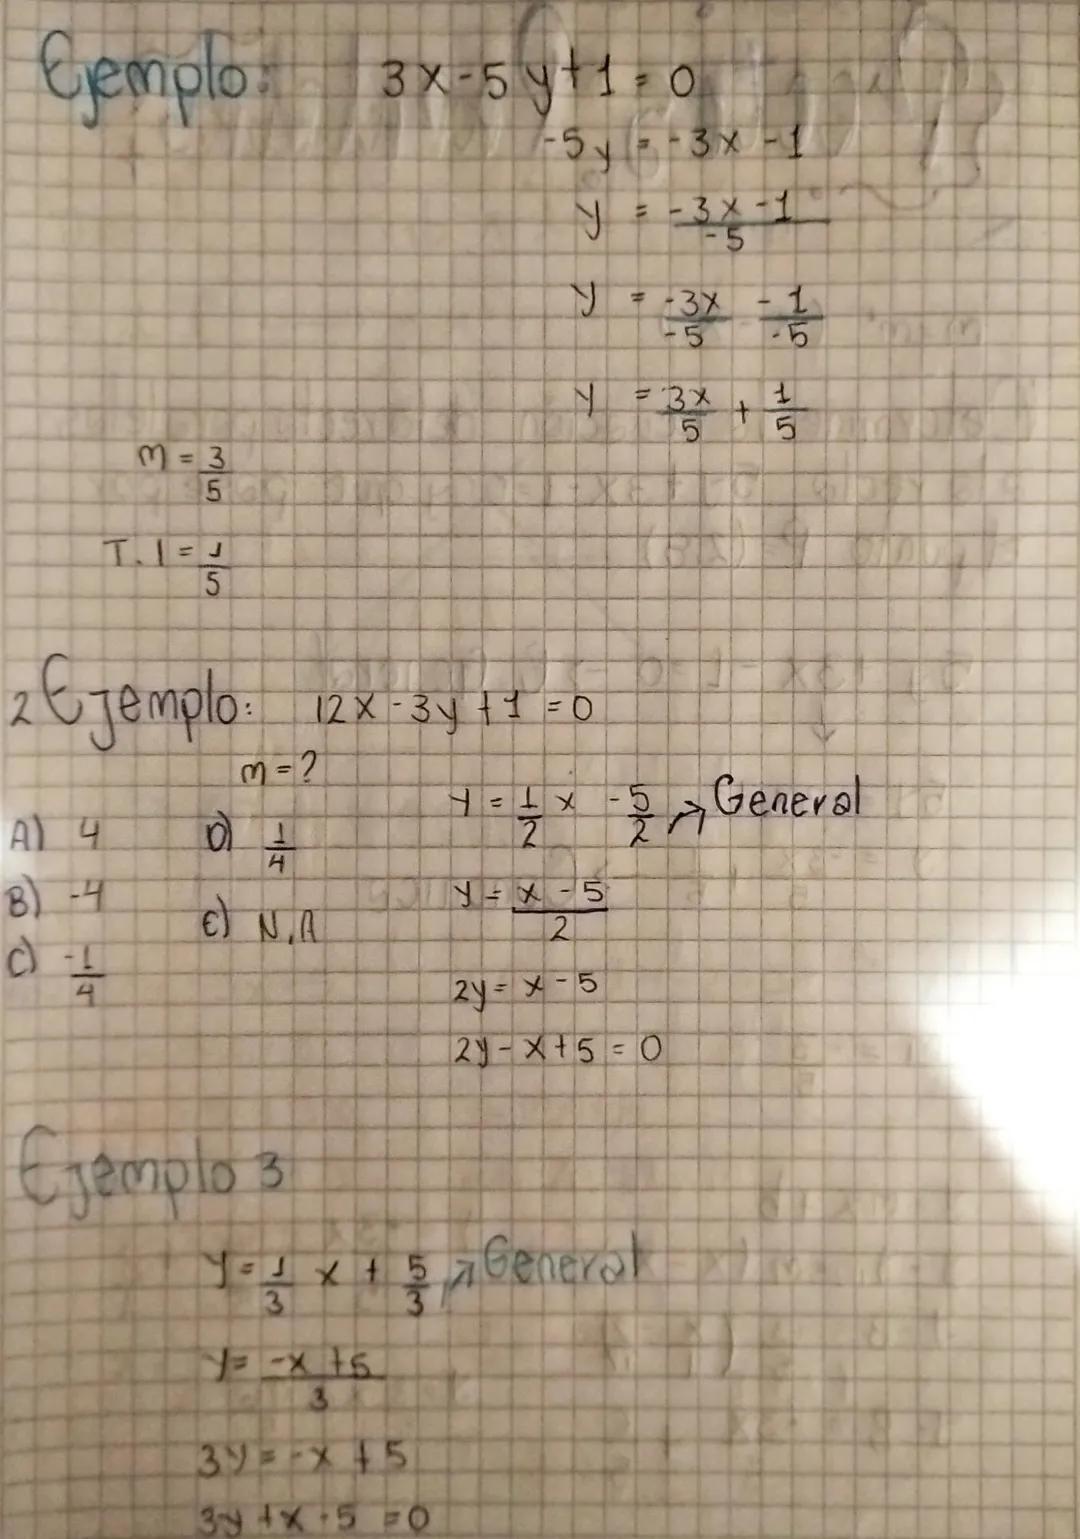 Ejemplo: 3x-5y+1=0
-5y=-3x-1
y = (-3x-1)/-5
y = -3x/-5 - 1/-5
y = 3x/5 + 1/5
m = 3/5
T.I = 1/5
2 Ejemplo: 12x-3y+1=0
m=?
A) 4
B) -4
C) -1/4
D) 1/4
E) N.A
y = 1/2 x - 5/2 → General
y = (x-5)/2
2y = x-5
2y-x+5=0
Ejemplo 3
y = 1/3 x + 5/3 → General
y = (-x+5)/3
3y=-x+5
3y+x-5=0